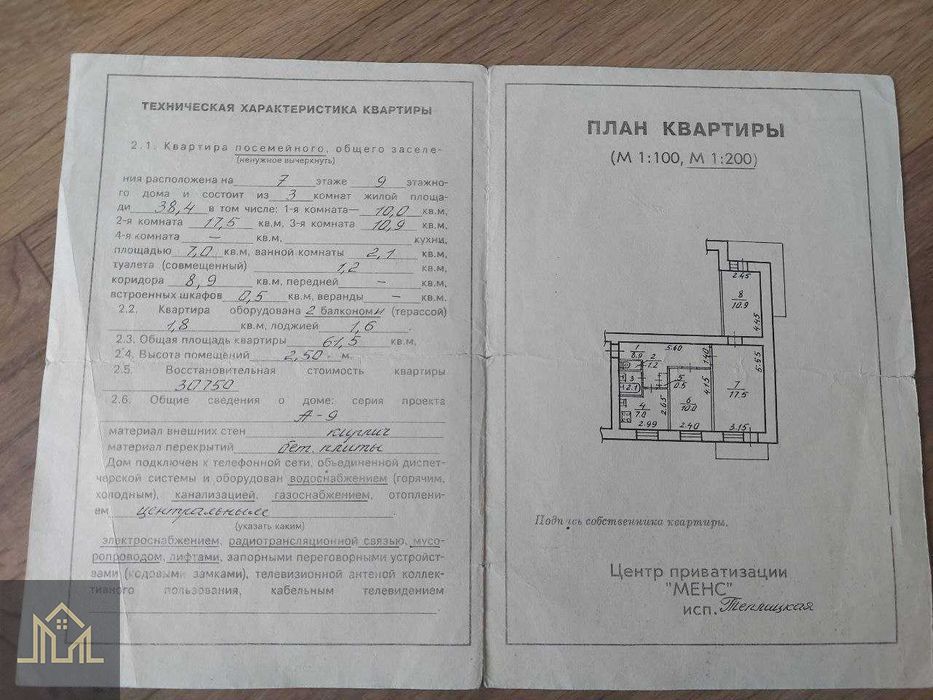 ТЕХНИЧЕСКАЯ ХАРАКТЕРИСТИКА КВАРТИРЫ
2.1. Квартира посемейного, общего заселе-
(ненужное вычеркнуть)
ния расположена на 7 этаже 9 этажно-
го дома и состоит из 3 комнат жилой площа-
ди 38,4 в том числе: 1-я комната— 10,0 кв.м,
2-я комната 17,5 кв.м, 3-я комната 10,9 кв.м,
4-я комната — кв.м, кухни,
площадью 7,0 кв.м, ванной комнаты 2,1 кв.м,
туалета (совмещенный) 1,2 кв.м,
коридора 8,9 кв.м, передней — кв.м,
встроенных шкафов 0,5 кв.м, веранды — кв.м.
2.2. Квартира оборудована 2 балконом (терассой)
1,8 кв.м, лоджией 1,6 .
2.3. Общая площадь квартиры 61,5 кв.м.
2.4. Высота помещений 2,50 м.
2.5. Восстановительная стоимость квартиры
30750
2.6. Общие сведения о доме: серия проекта
А-9
материал внешних стен кирпич
материал перекрытий бет. плиты
Дом подключен к телефонной сети, объединенной диспет-
черской системы и оборудован водоснабжением (горячим,
холодным), канализацией, газоснабжением, отоплени-
ем центральным .
(указать каким)
электроснабжением, радиотрансляционной связью, мусо-
ропроводом, лифтами, запорными переговорными устройст-
вами (кодовыми замками), телевизионной антеной коллек-
тивного пользования, кабельным телевидением
ПЛАН КВАРТИРЫ
(М 1:100, М 1:200)
2.45
8
10.9
4.45
1
8.9
5.60
2
1.2
1.40
3
2.1
5
0.5
4.15
7
17.5
5.55
4
7.0
2.65
6
10.0
2.99
2.40
3.15
Подпись собственника квартиры.
Центр приватизации
"МЕНС"
исп. Теплицкая